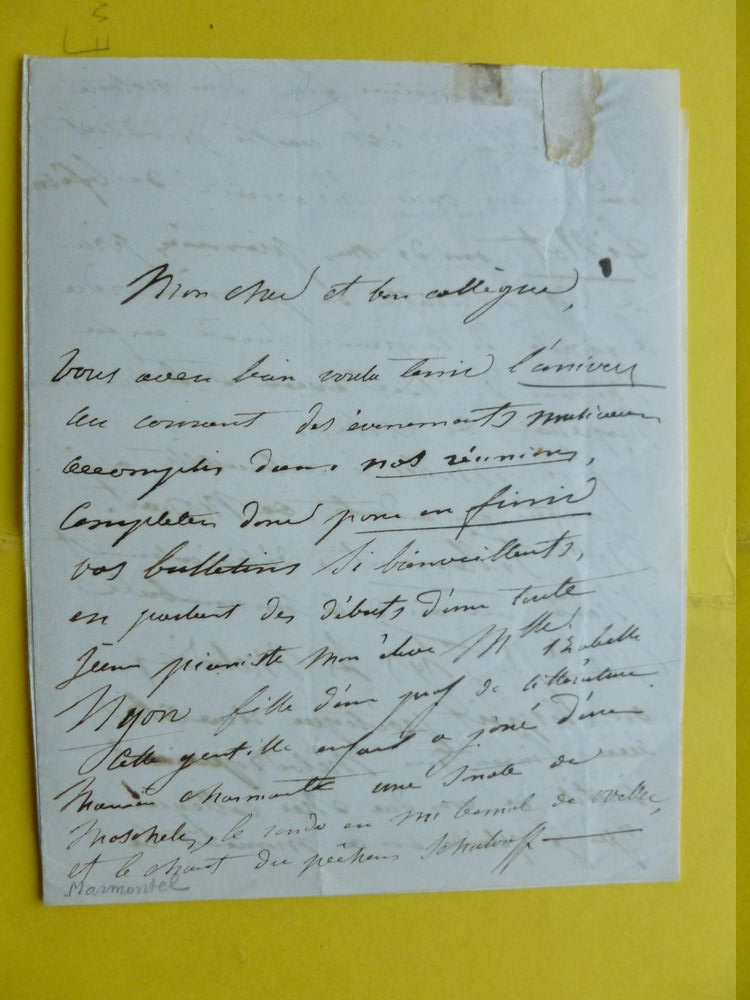 Mon cher et bon collègue,
Vous avez bien voulu tenir l'univers
au courant des évenements musicaux
accomplis dans nos réunions,
Completez donc pour en finir
vos bulletins si bienveillants,
en parlant des débuts d'une toute
jeune pianiste mon élève Mlle Izabelle
Nyon fille d'un prof de littérature
cette gentille enfant a joué d'une
manière charmante une étude de
Moscheles, le rondo en mi bemol de Weber,
et le chant du pêcheur Schuloff
Marmontel